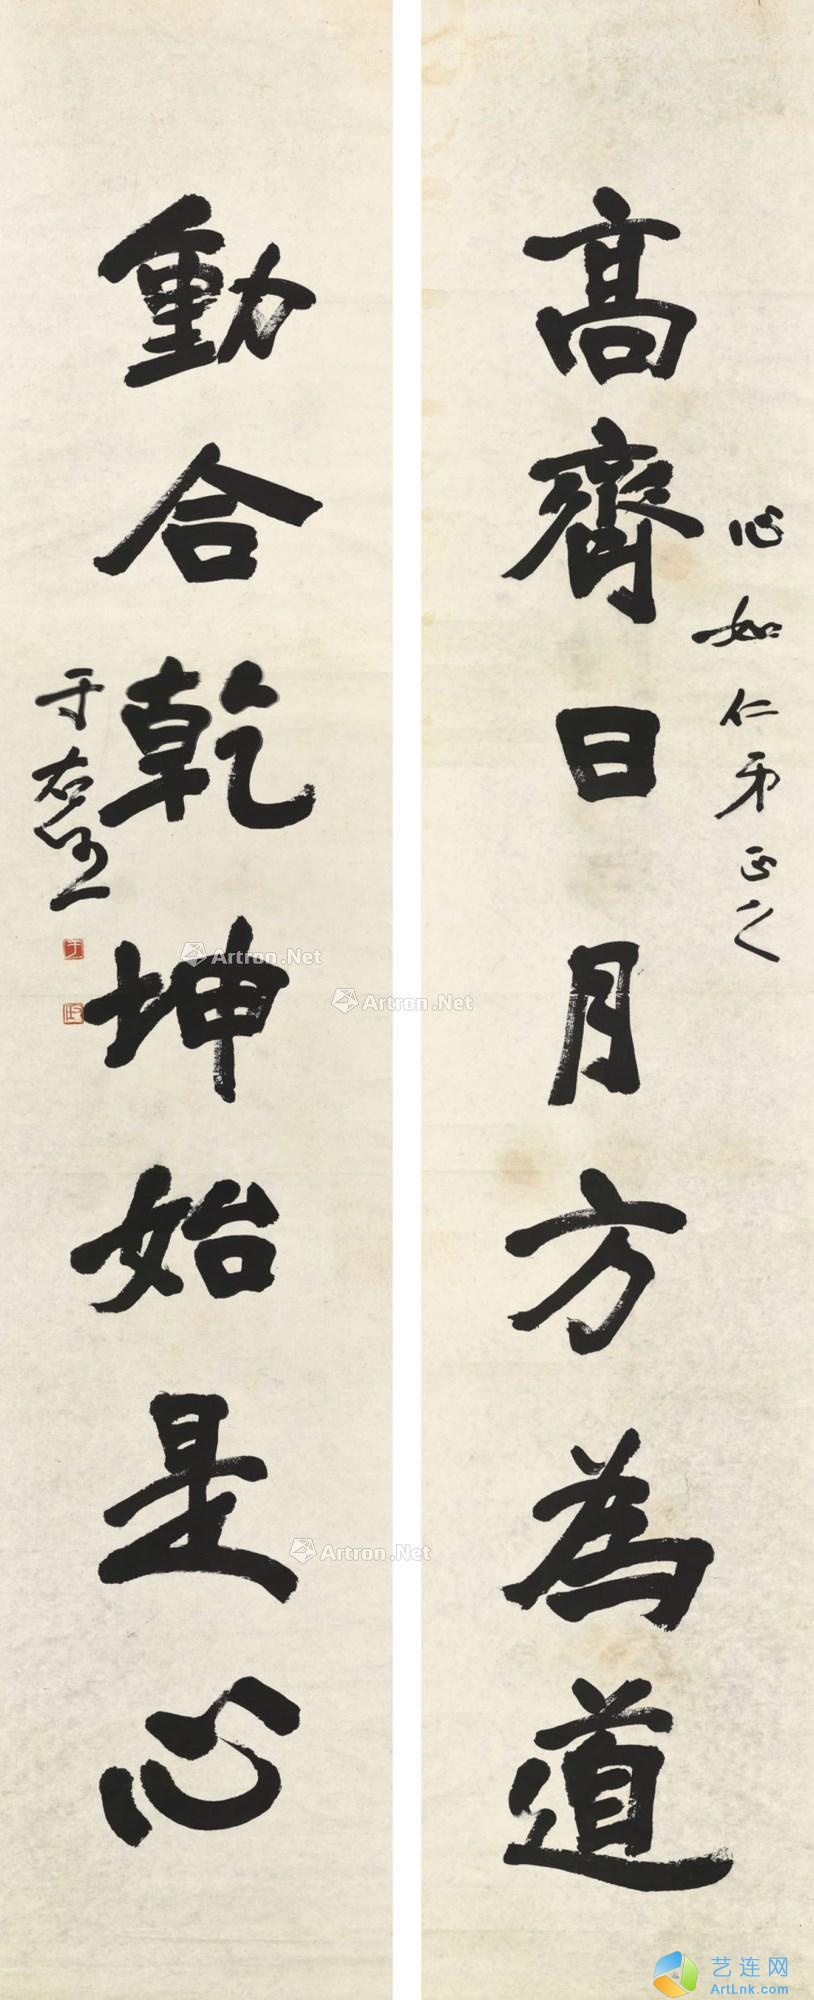 心如仁弟正之
高齊日月方為道
動合乾坤始是心
于右任
Artron.Net
Artron.Net
Artron.Net
艺连网
ArtLnk.com